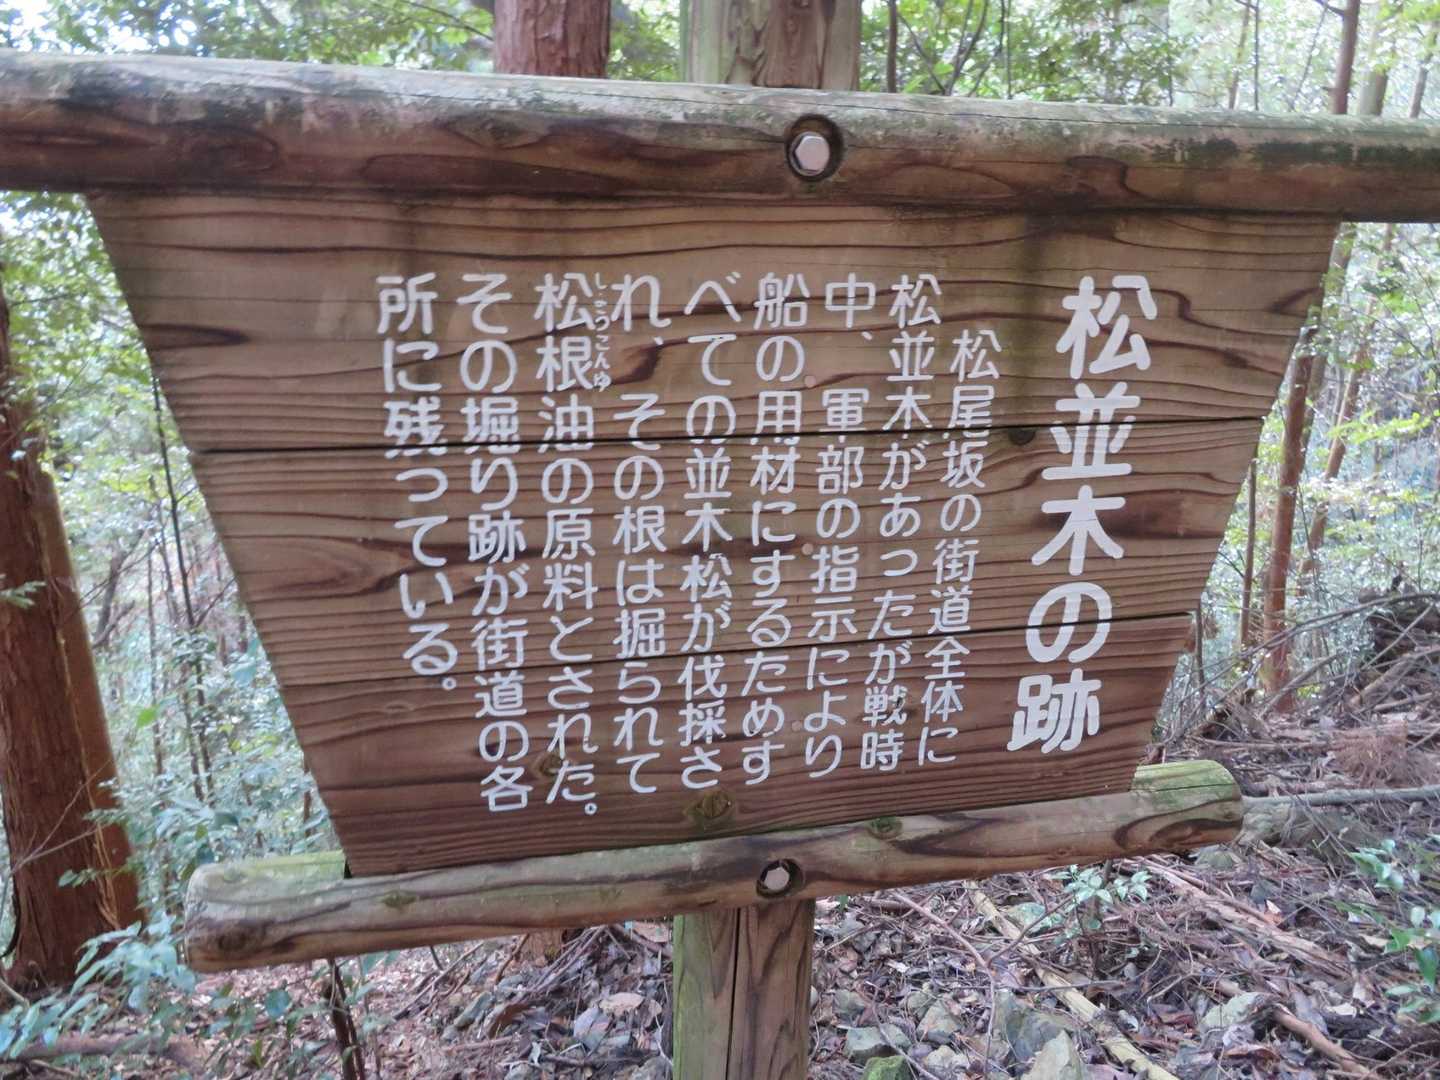 松並木の跡
松尾坂の街道全体に
松並木があったが戦時
中、軍部の指示により
船の用材にするためす
べての並木松が伐採さ
れ、その根は掘られて
松根油の原料とされた。
しょうこんゆ
その堀り跡が街道の各
所に残っている。